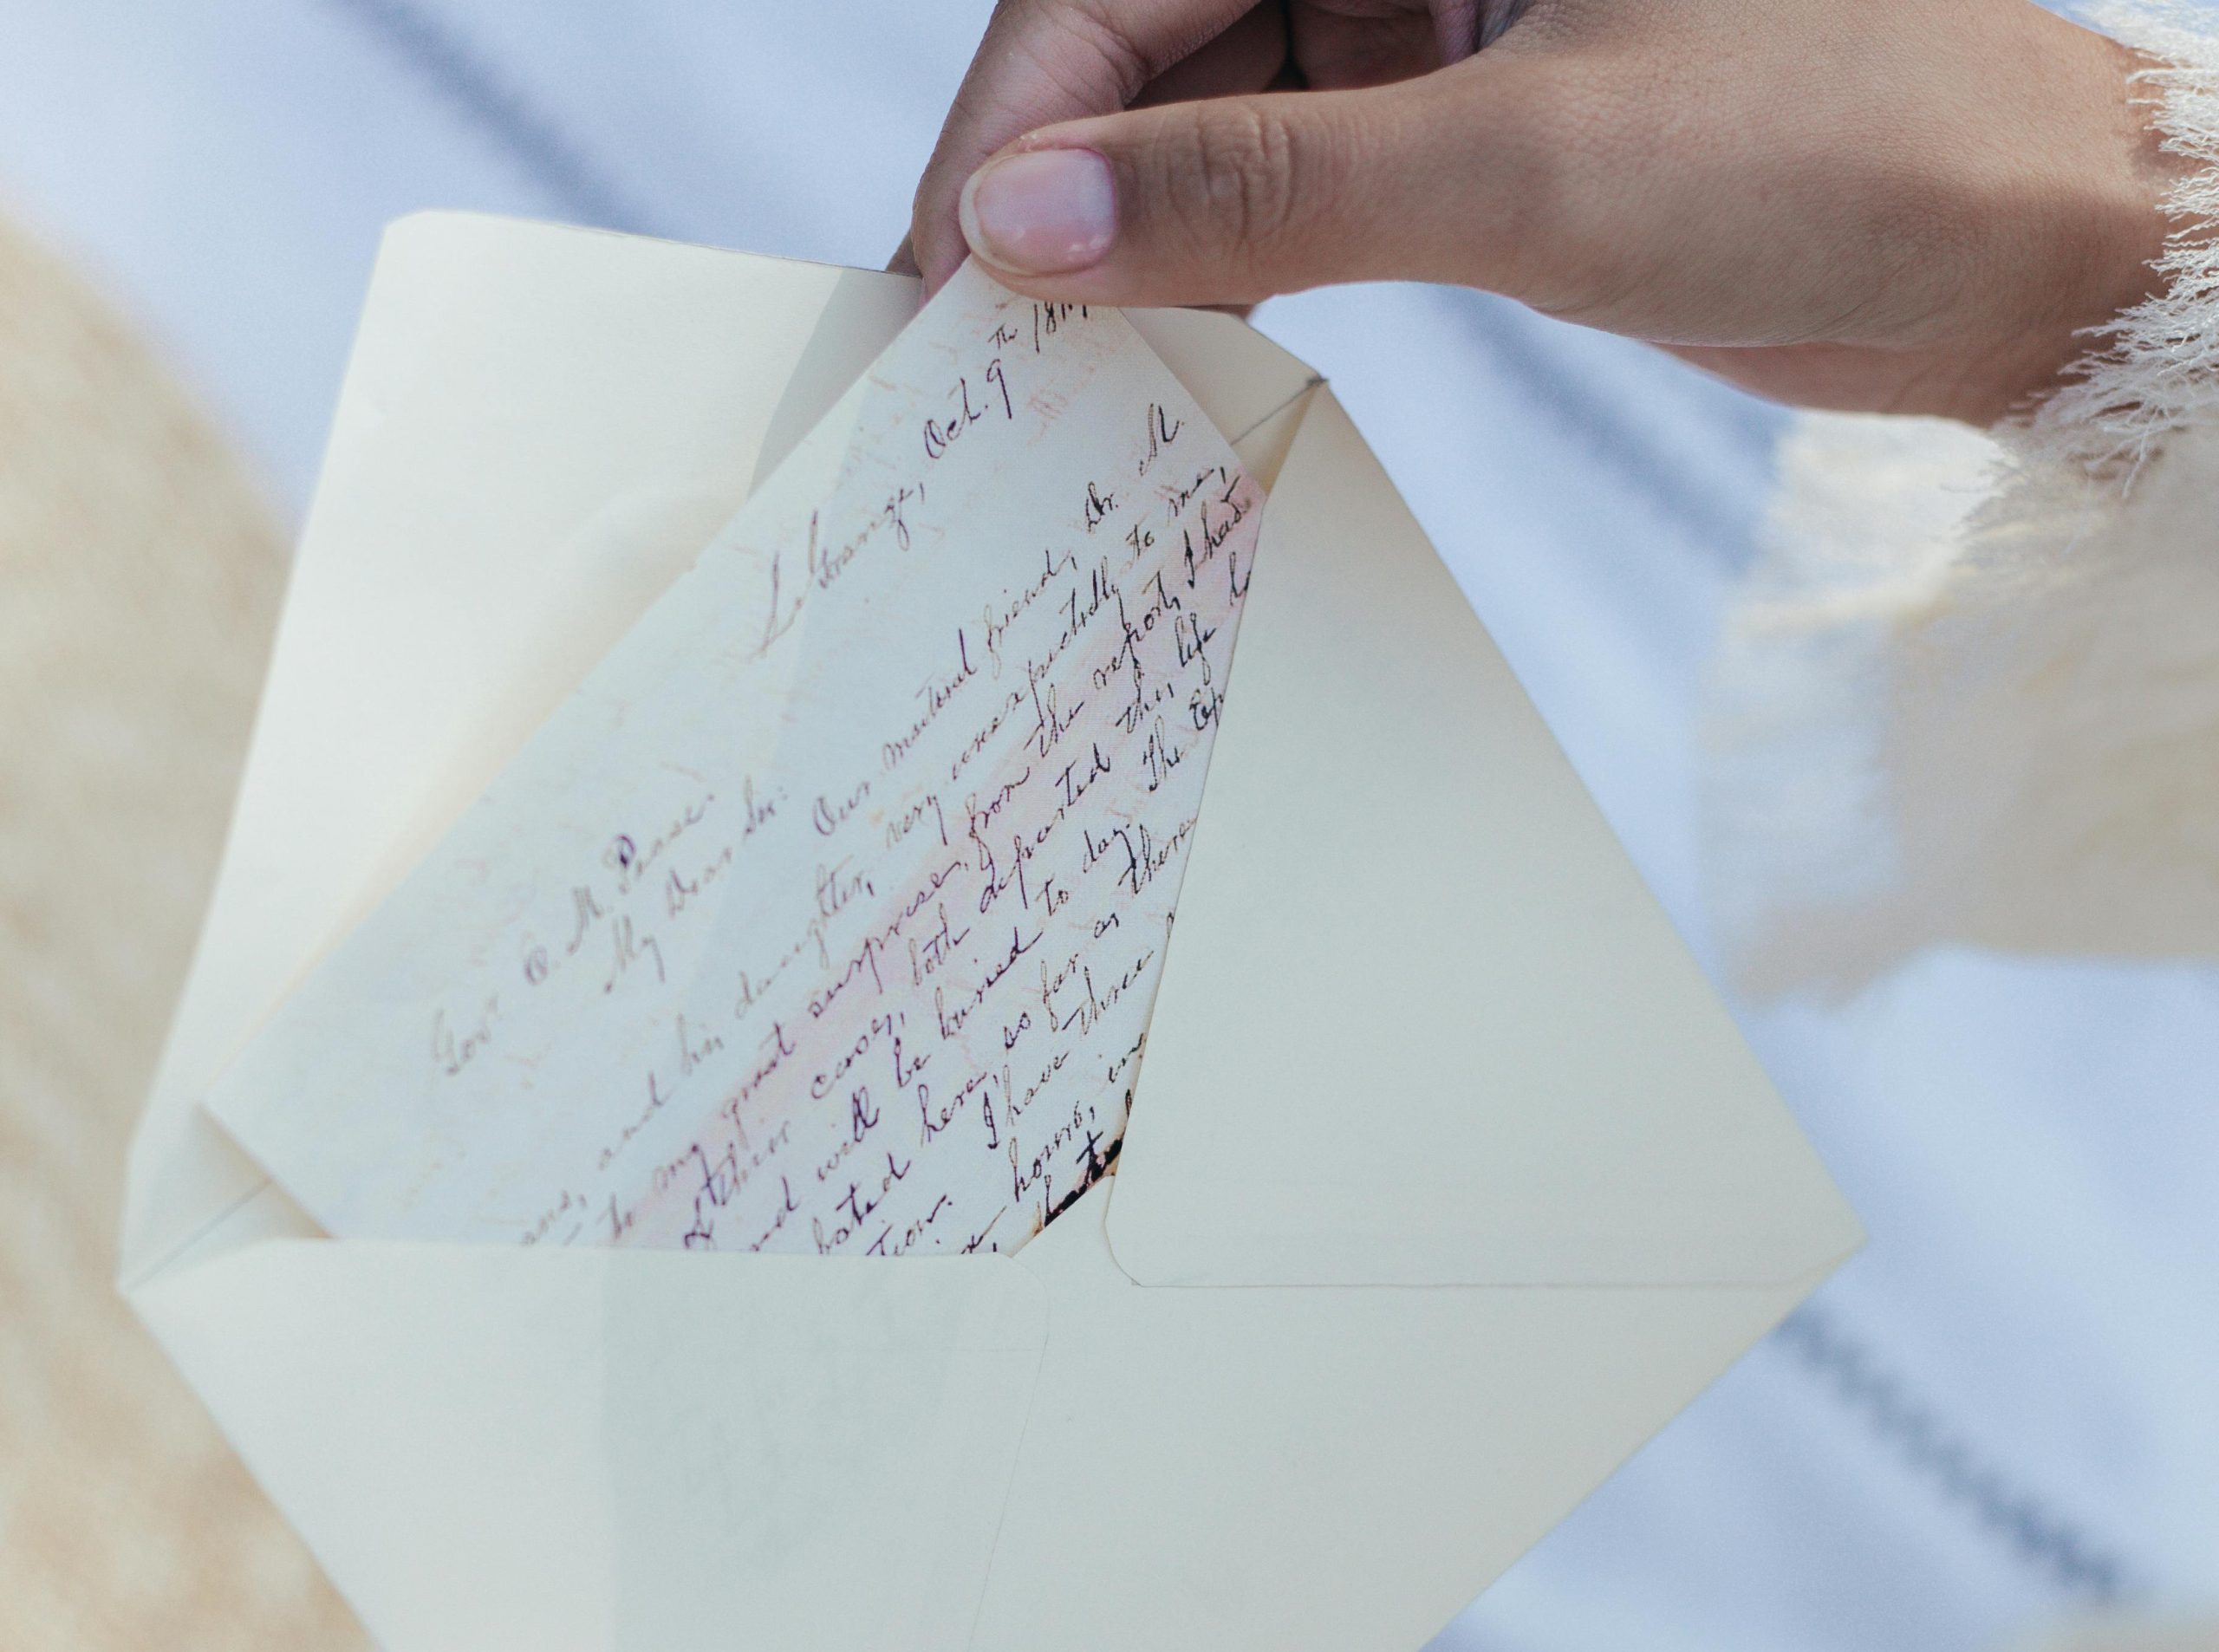 LaGrange, Oct. 9th 18
Gov. E. M. Pease.
My Dear Sir:
Our mutual friend, Dr. M.
and his daughter, very unexpectedly to me,
to my great surprise, from the report, I had
of their cases, both departed this life
and will be buried to day. The Ep
bated here, so far as there
tion. I have three
hours, in